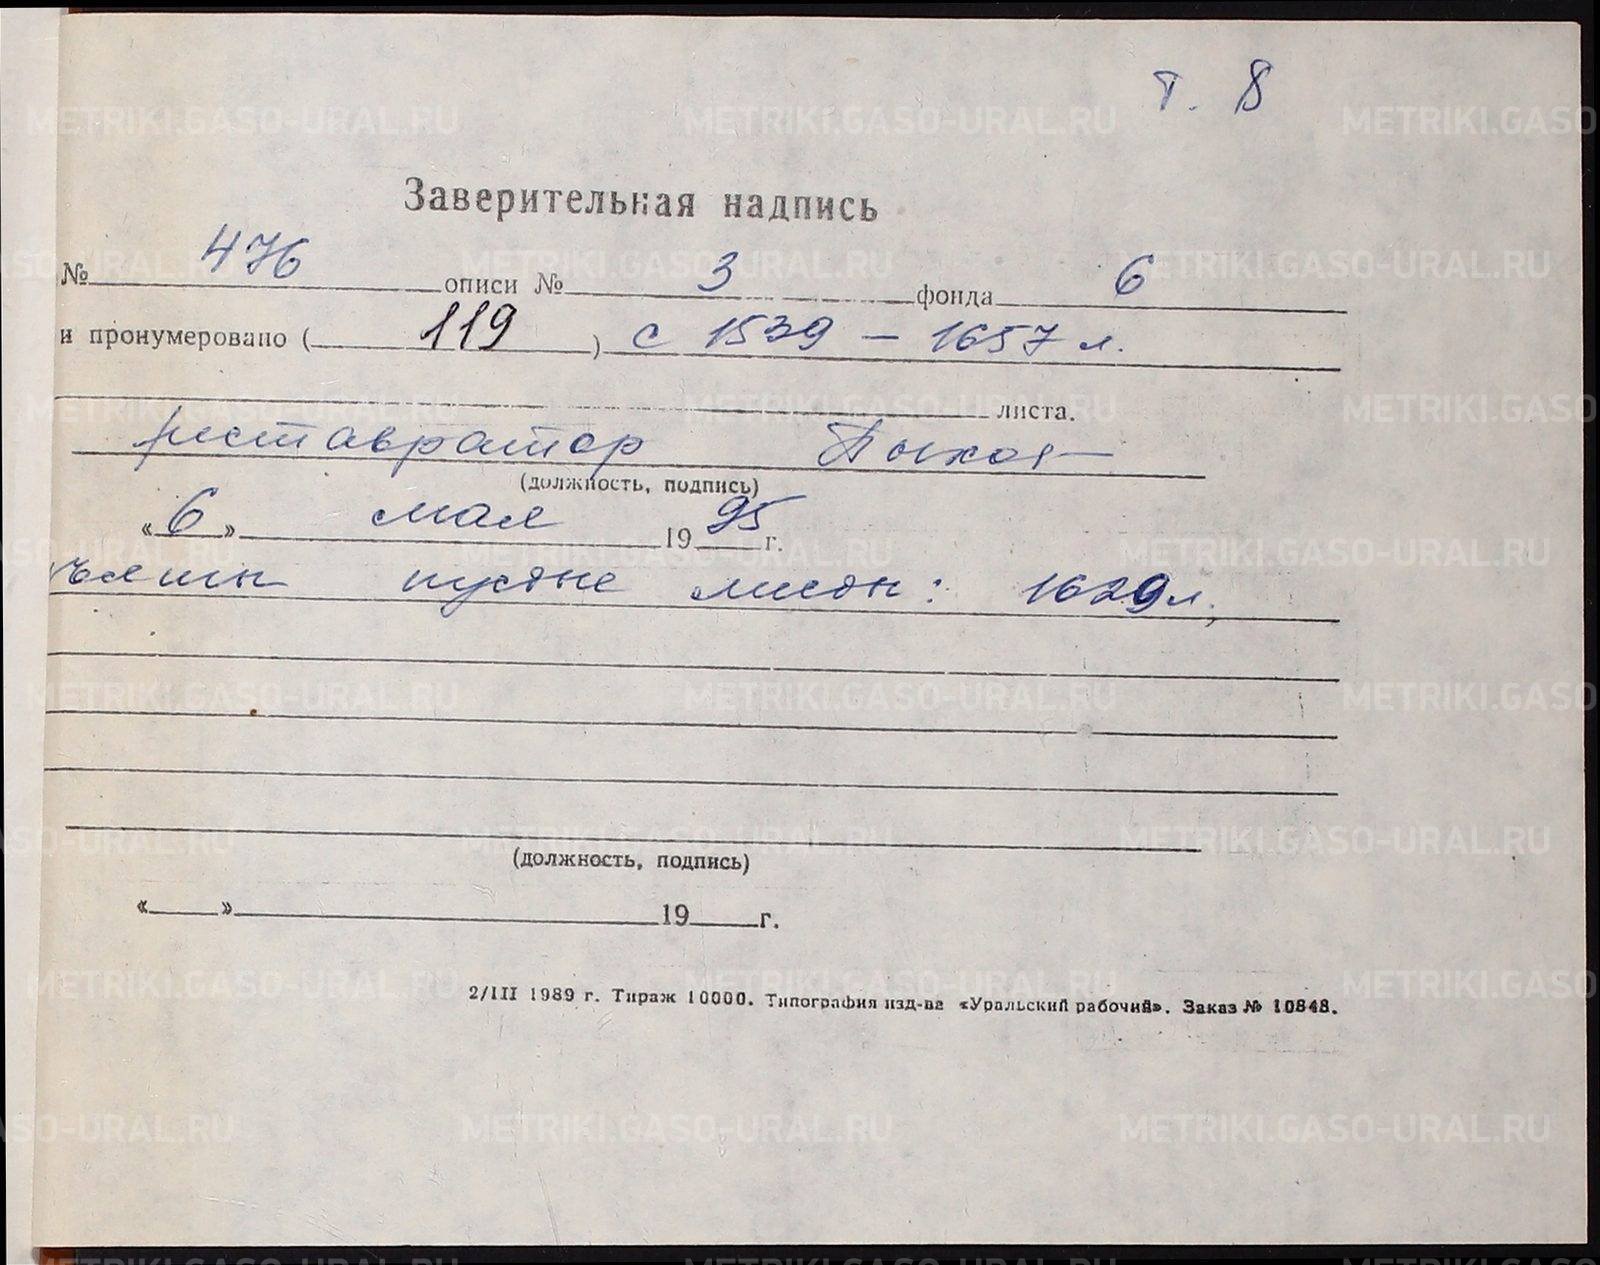 т. 8
Заверительная надпись
№ 476 описи № 3 фонда 6
и пронумеровано ( 119 ) с 1539 – 1657 л.
листа.
реставратор
(должность, подпись)
« 6 » мая 19 95 г.
пустые листы: 1629 л,
(должность, подпись)
« » 19 г.
2/III 1989 г. Тираж 10000. Типография изд-ва «Уральский рабочий». Заказ № 10848.
METRIKI.GASO-URAL.RU